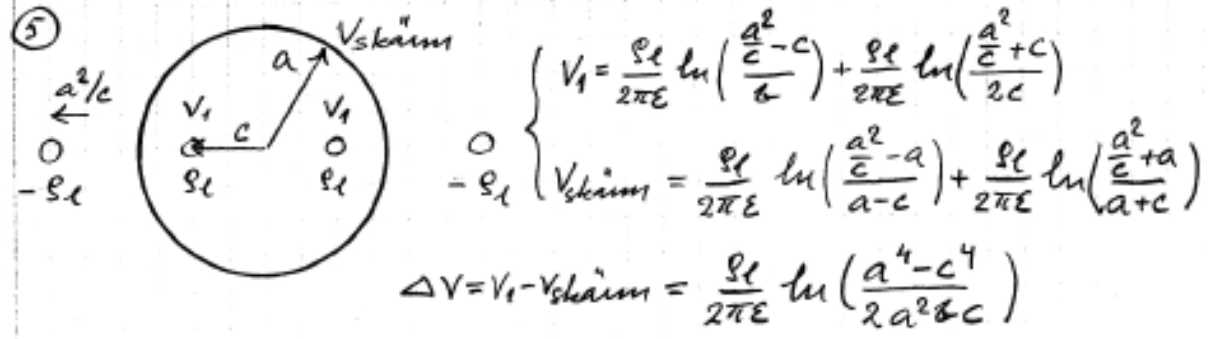 5
Vskärm
a
a²/c
V₁ V₁
c
-ρℓ ρℓ ρℓ -ρℓ
V₁ = ρℓ/2πε ln((a²/c - c)/b) + ρℓ/2πε ln((a²/c + c)/2c)
Vskärm = ρℓ/2πε ln((a²/c - a)/(a-c)) + ρℓ/2πε ln((a²/c + a)/(a+c))
ΔV = V₁ - Vskärm = ρℓ/2πε ln((a⁴-c⁴)/2a²bc)